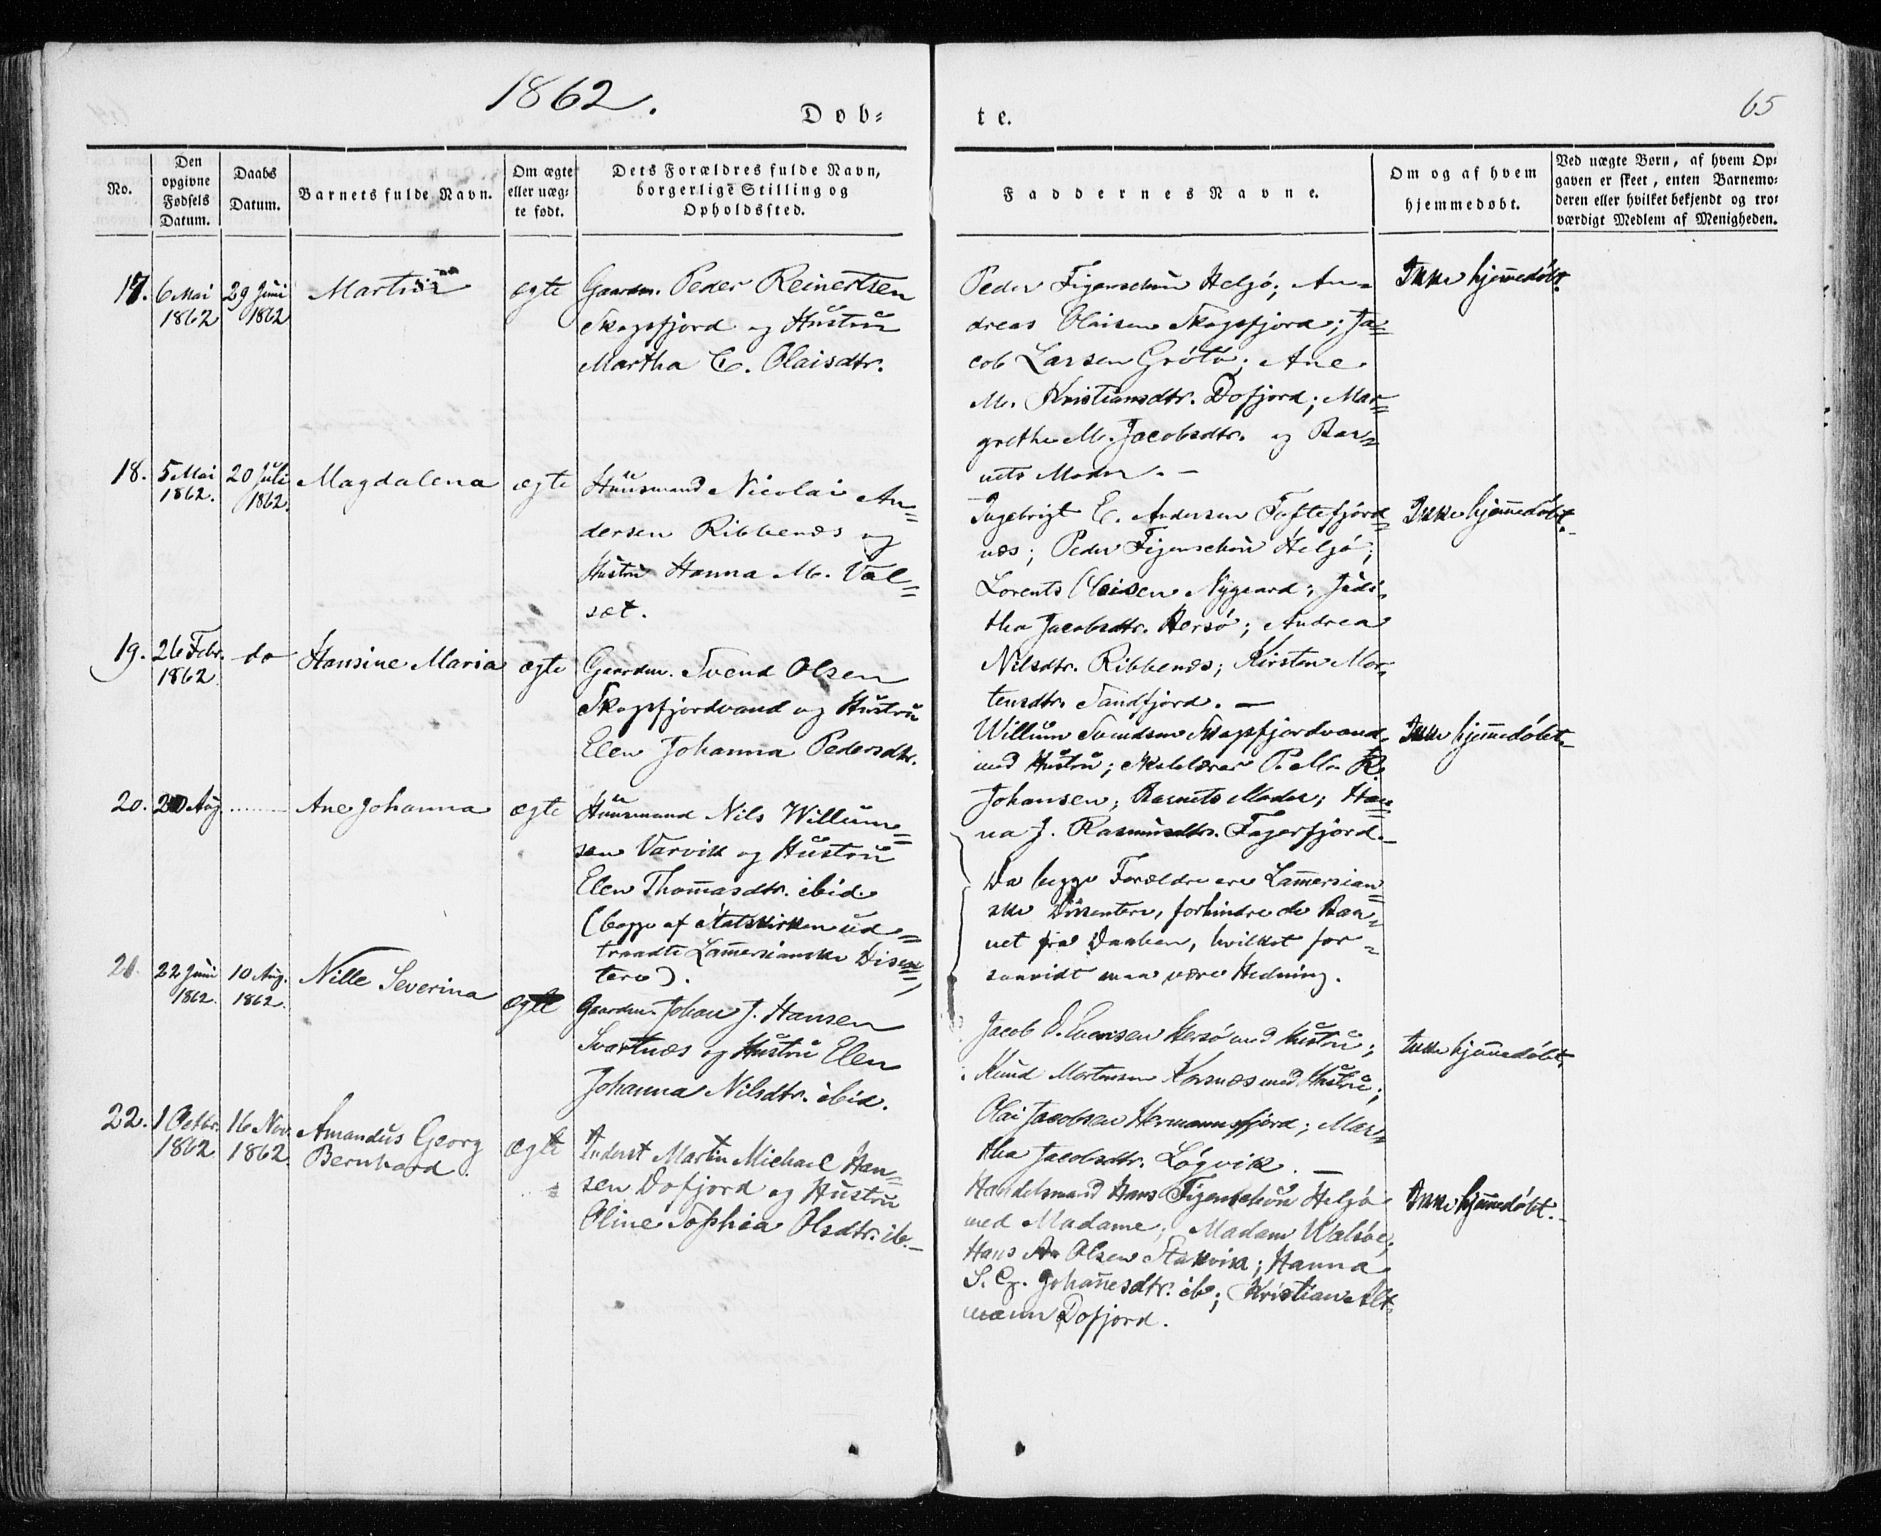 1862.
65
Døb-
te.
No.
Den opgivne Fødsels Datum.
Daabs Datum.
Barnets fulde Navn.
Om ægte eller uægte født.
Dets Forældres fulde Navn, borgerlige Stilling og Opholdssted.
Faddernes Navne.
Om og af hvem hjemmedøbt.
Ved uægte Børn, af hvem Opgaven er skeet, enten Barnemoderen eller hvilket bekjendt og troværdigt Medlem af Menigheden.
17.
6 Mai
1862
29 Juni
1862
ægte
Gaardm. Peder Reinertsen
Skogsfjord og Hustru
Martha C. Olaisdtr.
Peder Figenschou Helgø; An-
dreas Olaisen Skogsfjord; Ja-
cob Larsen Grøtø; Ane
M. Kristiansdtr. Dofjord; Mar-
grethe M. Jacobsdtr. og Bar-
nets Moder. -
Ikke hjemmedøbt.
18.
5 Mai
1862.
20 Juli
1862.
Magdalena
ægte
Huusmand Nicolai An-
dersen Ribbenæs og
Hustru Hanna M. Val-
sæt.
Ingebrigt E. Andersen Toftefjord-
næs; Peder Figenschou Helgø;
Lorents Olaisen Nygaard; Judi-
tha Jacobsdtr. Hersø; Andrea
Nilsdtr. Ribbenæs; Kirsten Mor-
tensdtr. Sandfjord. -
Ikke hjemmedøbt.
19.
26 Febr.
1862
do
Hansine Maria
ægte
Gaardm. Svend Olsen
Skogsfjordvand og Hustru
Elen Johanna Pedersdtr.
Willum Svendsen Skogsfjordvand
med Hustru; Skolelærer P. M. R.
Johansen; Barnets Moder; Han-
na J. Rasmusdtr. Fagerfjord.
Ikke hjemmedøbt.
20.
20 Aug.
Ane Johanna
ægte
Huusmand Nils Willum-
sen Varvik og Hustru
Elen Thomasdtr. ibid.
(begge af Statskirken ud-
traadte Lammersianske Disen-
tere).
Da begge Forældre ere Lammersian-
ske Dissentere, forhindre de Bar-
net fra Daaben, hvilket for-
saavidt maa være Hedning.
21.
22 Juni
1862.
10 Aug.
1862.
Nille Severina
ægte
Gaardm. Johan J. Hansen
Svartnæs og Hustru Elen
Johanna Nilsdtr. ibid.
Jacob Hersø med Hustru;
Knud Mortensen Kornæs med Hustru;
Olai Jacobsen Hermannsfjord; Mar-
tha Jacobsdtr. Løgvik. -
Ikke hjemmedøbt.
22.
1 Octbr.
1862
16 Nov.
1862.
Amandus Georg
Bernhard.
ægte
Inderst Martin Michael Han-
sen Dofjord og Hustru
Oline Sophia Olsdtr. ib. -
Handelsmand Hans Figenschou Helgø
med Madame; Madam Walsøe;
Hans A. Olsen Stakvik; Hanna
S. C. Johannesdtr. ib; Kristian Alt-
mann Dofjord.
Ikke hjemmedøbt. -